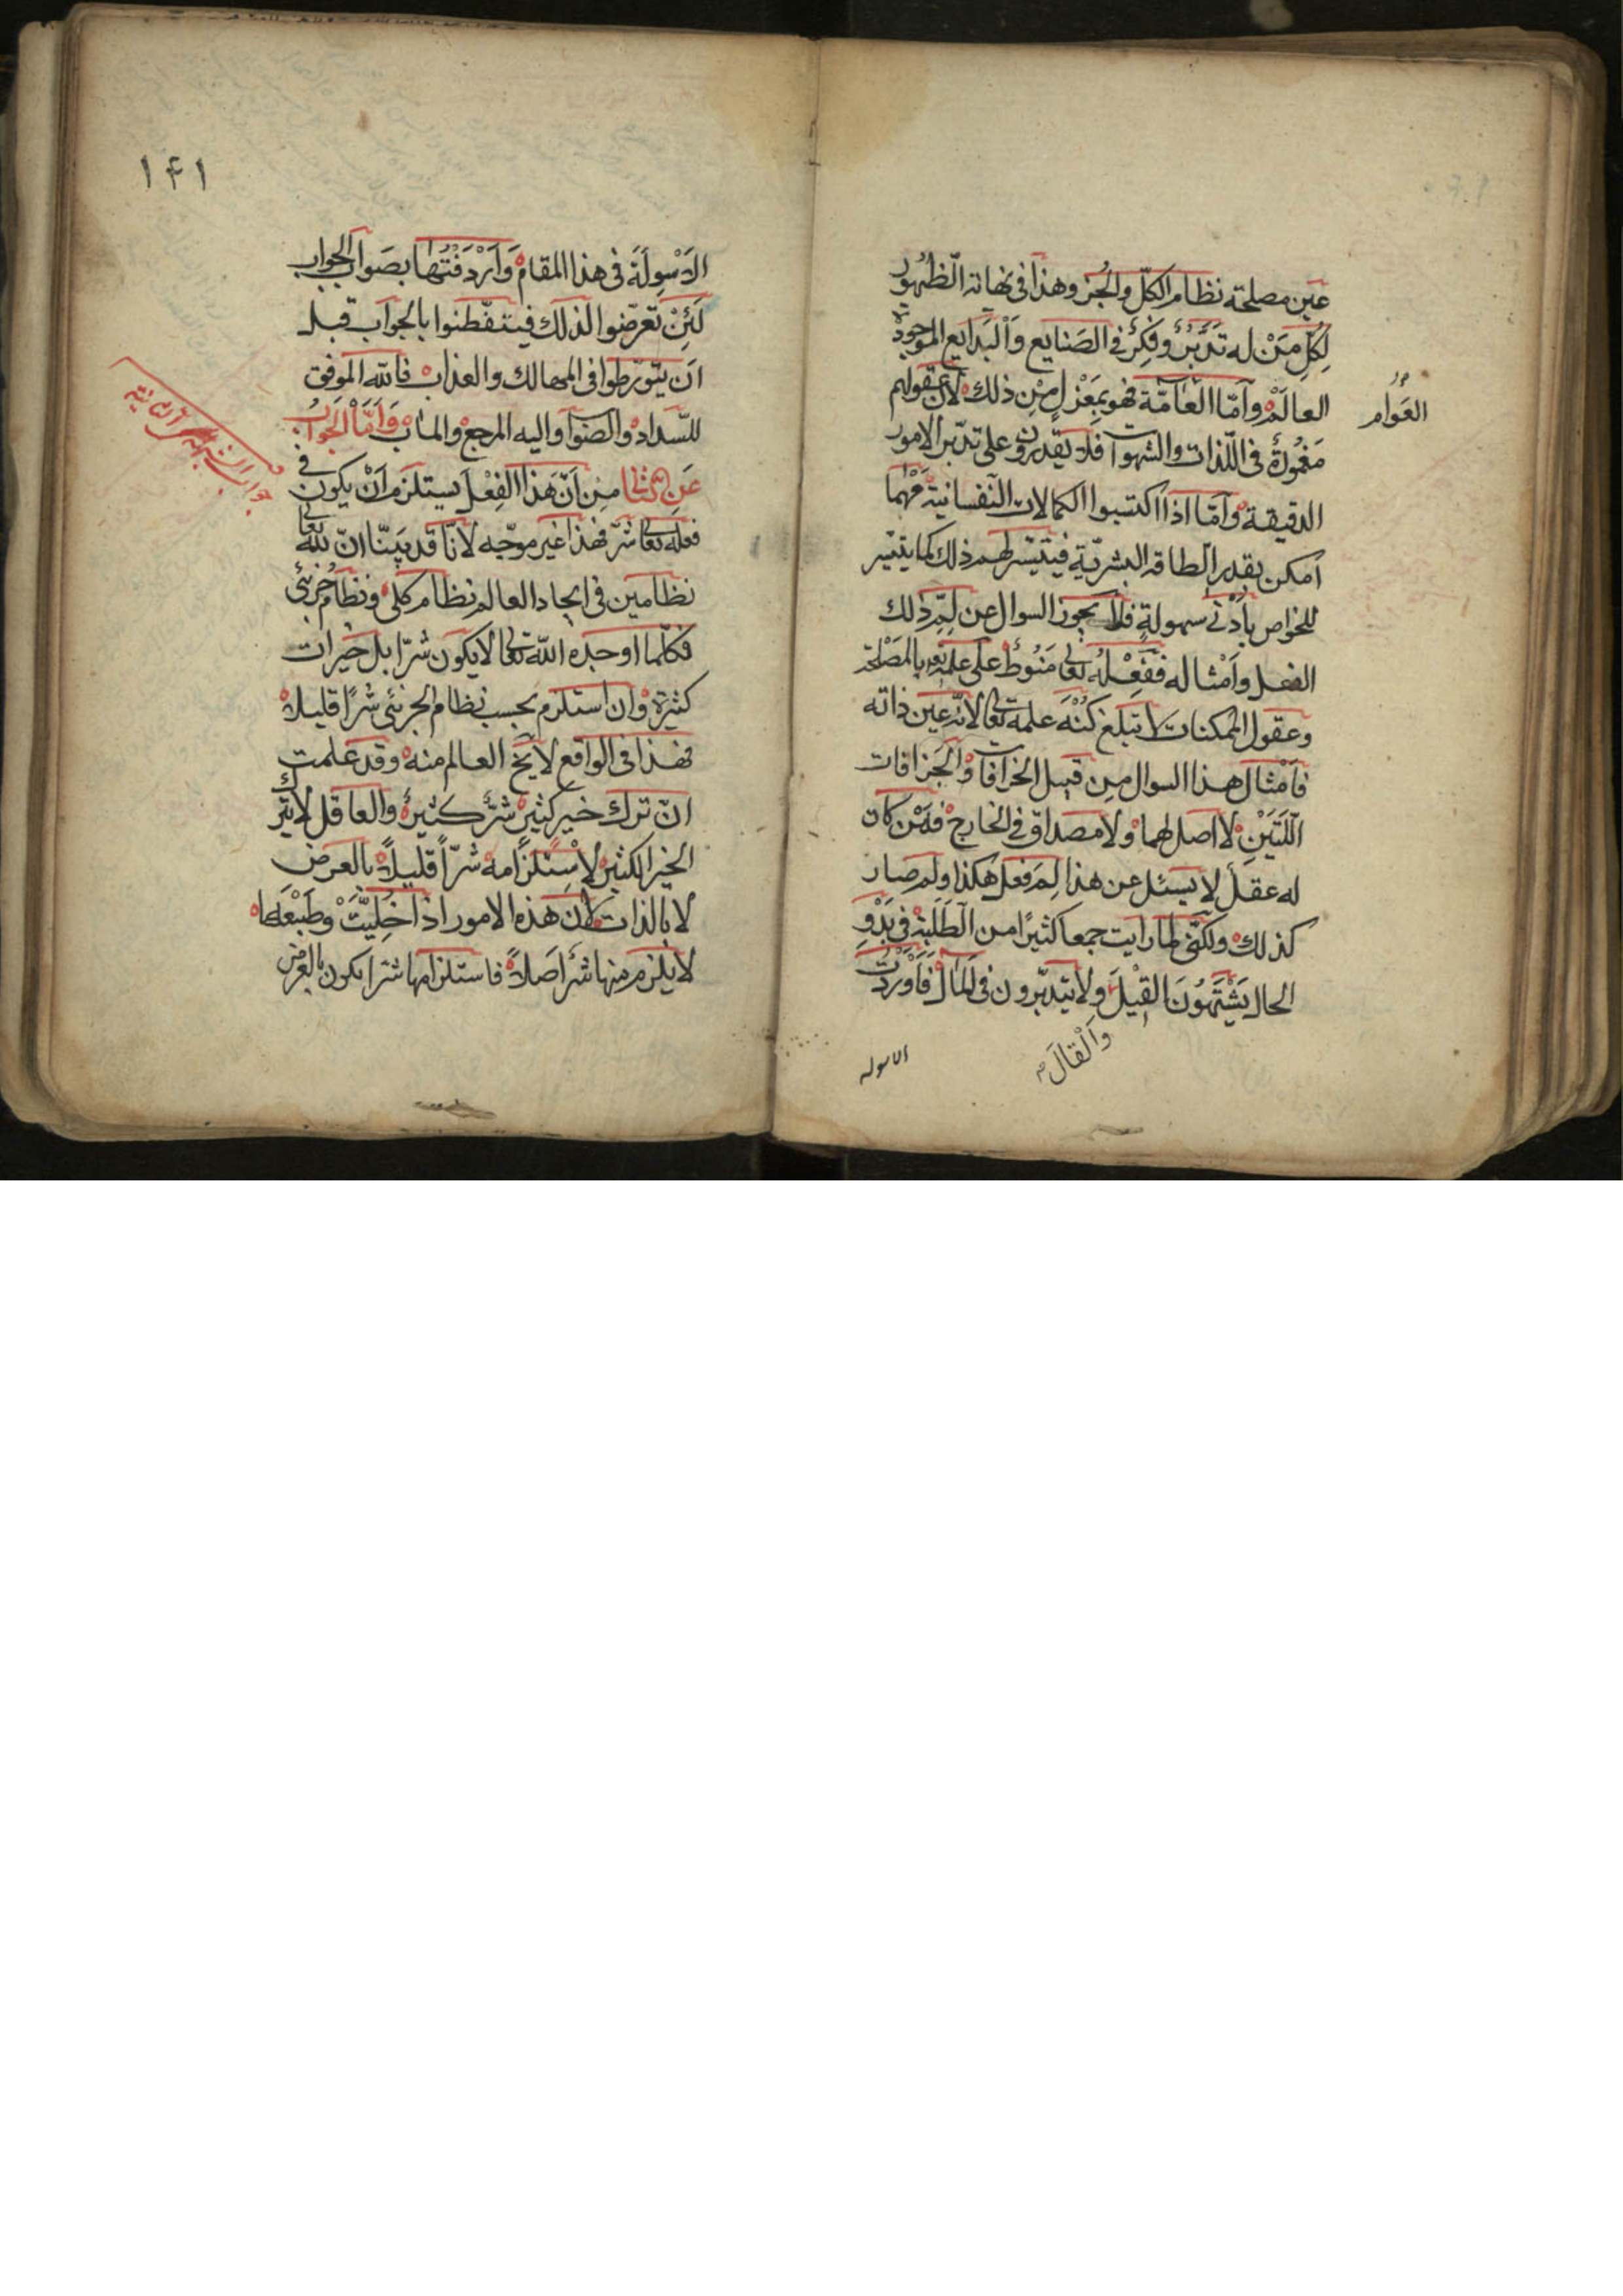 عين مصلحته نظام الكلّ والجُزء وهذا في نهاية الظهور
لِكلّ مَنْ له تدبّر وفكر في الصنايع والبدايع الموجودة في
العالم وامّا العامّة فهو بمعزل من ذلك لان عقولهم
العَوام
مغمورة في اللّذات والشهوات فلا يقدرون على تدبّر الامور
الدقيقة وامّا اذا اكتسبوا الكمالات النفسانية مَهْما
امكن بقدر الطاقة البشريّة فيتيسّر لهم ذلك كما يتيسّر
للخواص بأدنى سهولةٍ فلا يجوز السوال عن لِمّ ذلك
الفعل وامثاله ففِعْلُه تعالى مَنُوطٌ على علمه بالمصلحة
وعقول الممكنات لا تبلغ كُنْهَ علمه تعالى لانّه عين ذاته
فامثال هذا السوال من قبيل الخرافات والجزافات
اللّتَيْنِ لا اصل لهما ولا مصداق في الخارج فمَنْ كان
له عقل لا يسئل عن هذا لِمَ فعل هكذا ولم صار
كذلك ولكنّي لما رايت جمعا كثيرًا من الطَلَبة في بَدْوِ
الحال يَشْتَهُونَ القِيْلَ ولا يتدبّرون في المآل فَأَوْرَدْتُ
وَالْقالَ صح
الاسوله
١٤١
الاَسْوِلَةَ في هذا المقام وَاَرْدَفْتُها بصَواب الجواب
لَئِنْ تعرّضوا لذلك فيتفطّنوا بالجواب قبل
ان يتورّطوا في المهالك والعذاب فالله الموفق
للسّداد والصواب واليه المرجع والمآب وَاَمَّا الْجَوابُ
عَنِ الثاني مِن اَنّ هَذا الفِعْلَ يستلزم اَنْ يكون في
جواب الشبهة الثانية
فعله تعالى شرّ فهذا غير موجّه لانّا قد بيّنّا انّ لله تعالى
نظامين في ايجاد العالم نظام كلي ونظام جزئي
فكلّما اوجده الله تعالى لا يكون شرّا بل خيرات
كثيرة وان استلزم بحسب نظام الجزئي شرًا قليلا
فهذا في الواقع لا يخ العالم منه وقد علمت
انّ ترك خير كثير شرّ كثير والعاقل لا يترك
الخير الكثير لاِسْتلزامه شرّاً قليلاً بالعرض
لا بالذات لان هذه الامور اذا خُلِيَّتْ وطَبْعَها
لا يلزم منها شرٌ اَصلاً فاستلزامها شرّا يكون بالعرض